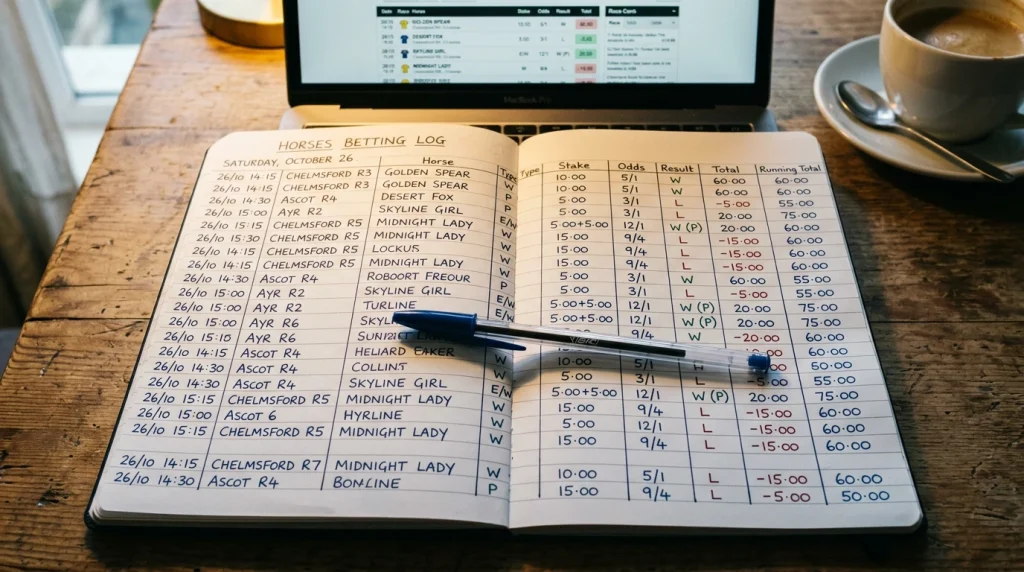 GOLDEN SPEAR
DESERT FOX
SKYLINE GIRL
MIDNIGHT LADY
Race Card
MacBook Pro
HORSES BETTING LOG
SATURDAY, OCTOBER 26 Horse Type Type Stake Odds Result Total Running Total
26/10 14:15 CHELMSFORD R3 GOLDEN SPEAR W 10.00 5/1 W 60.00 60.00
26/10 14:15 CHELMSFORD R3 GOLDEN SPEAR W 10.00 5/1 W 60.00 60.00
26/10 14:30 ASCOT R4 DESERT FOX P 5.00 3/1 L -5.00 55.00
26/10 15:00 AYR R2 SKYLINE GIRL E/W 5.00 3/1 L 20.00 75.00
26/10 15:30 CHELMSFORD R5 MIDNIGHT LADY W 5.00+5.00 12/1 W (P) 20.00 60.00
26/10 15:30 CHELMSFORD R5 MIDNIGHT LADY W 15.00 9/4 L -15.00 60.00
26/10 14:15 CHELMSFORD R5 LOCKUS W 15.00 9/4 L -15.00 60.00
26/10 14:15 CHELMSFORD R5 MIDNIGHT LADY W 15.00 9/4 W 60.00 55.00
26/10 14:30 ASCOT R4 ROBOORT FREOUR P 5.00 3/1 L -5.00 55.00
26/10 15:00 AYR R2 SKYLINE GIRL E/W 5.00+5.00 12/1 W (P) 20.00 75.00
26/10 15:00 AYR R2 TURLINE 5.00+5.00 12/1 W (P) 20.00 75.00
26/10 15:00 AYR R6 9/4 W -20.00 60.00
26/10 15:00 AYR R6
26/10 14:15 ASCOT R4 HELIARD EAKER W 10.00 5/1 60.00
26/10 14:30 ASCOT R4 COLLINT W 5.00 3/1 L -5.00 55.00
26/10 14:30 ASCOT R4 SKYLINE GIRL E/W 5.00+5.00 12/1 W (P) 20.00 75.00
26/10 15:15 CHELMSFORD R5 MIDNIGHT LADY W 15.00 9/4 L -15.00 60.00
26/10 15:00 ASCOT 6 HYRLINE W 5.00 12/1 L -15.00 60.00
26/10 15:15 CHELMSFORD R5 MIDNIGHT LADY W 15.00 9/4 L -15.00 60.00
26/10 14:15 CHELMSFORD R7 MIDNIGHT LADY W 10.00 5/1 L -15.00 60.00
26/10 14:30 ASCOT R4 BONLINE P 15.00 9/4 L -5.00 50.00